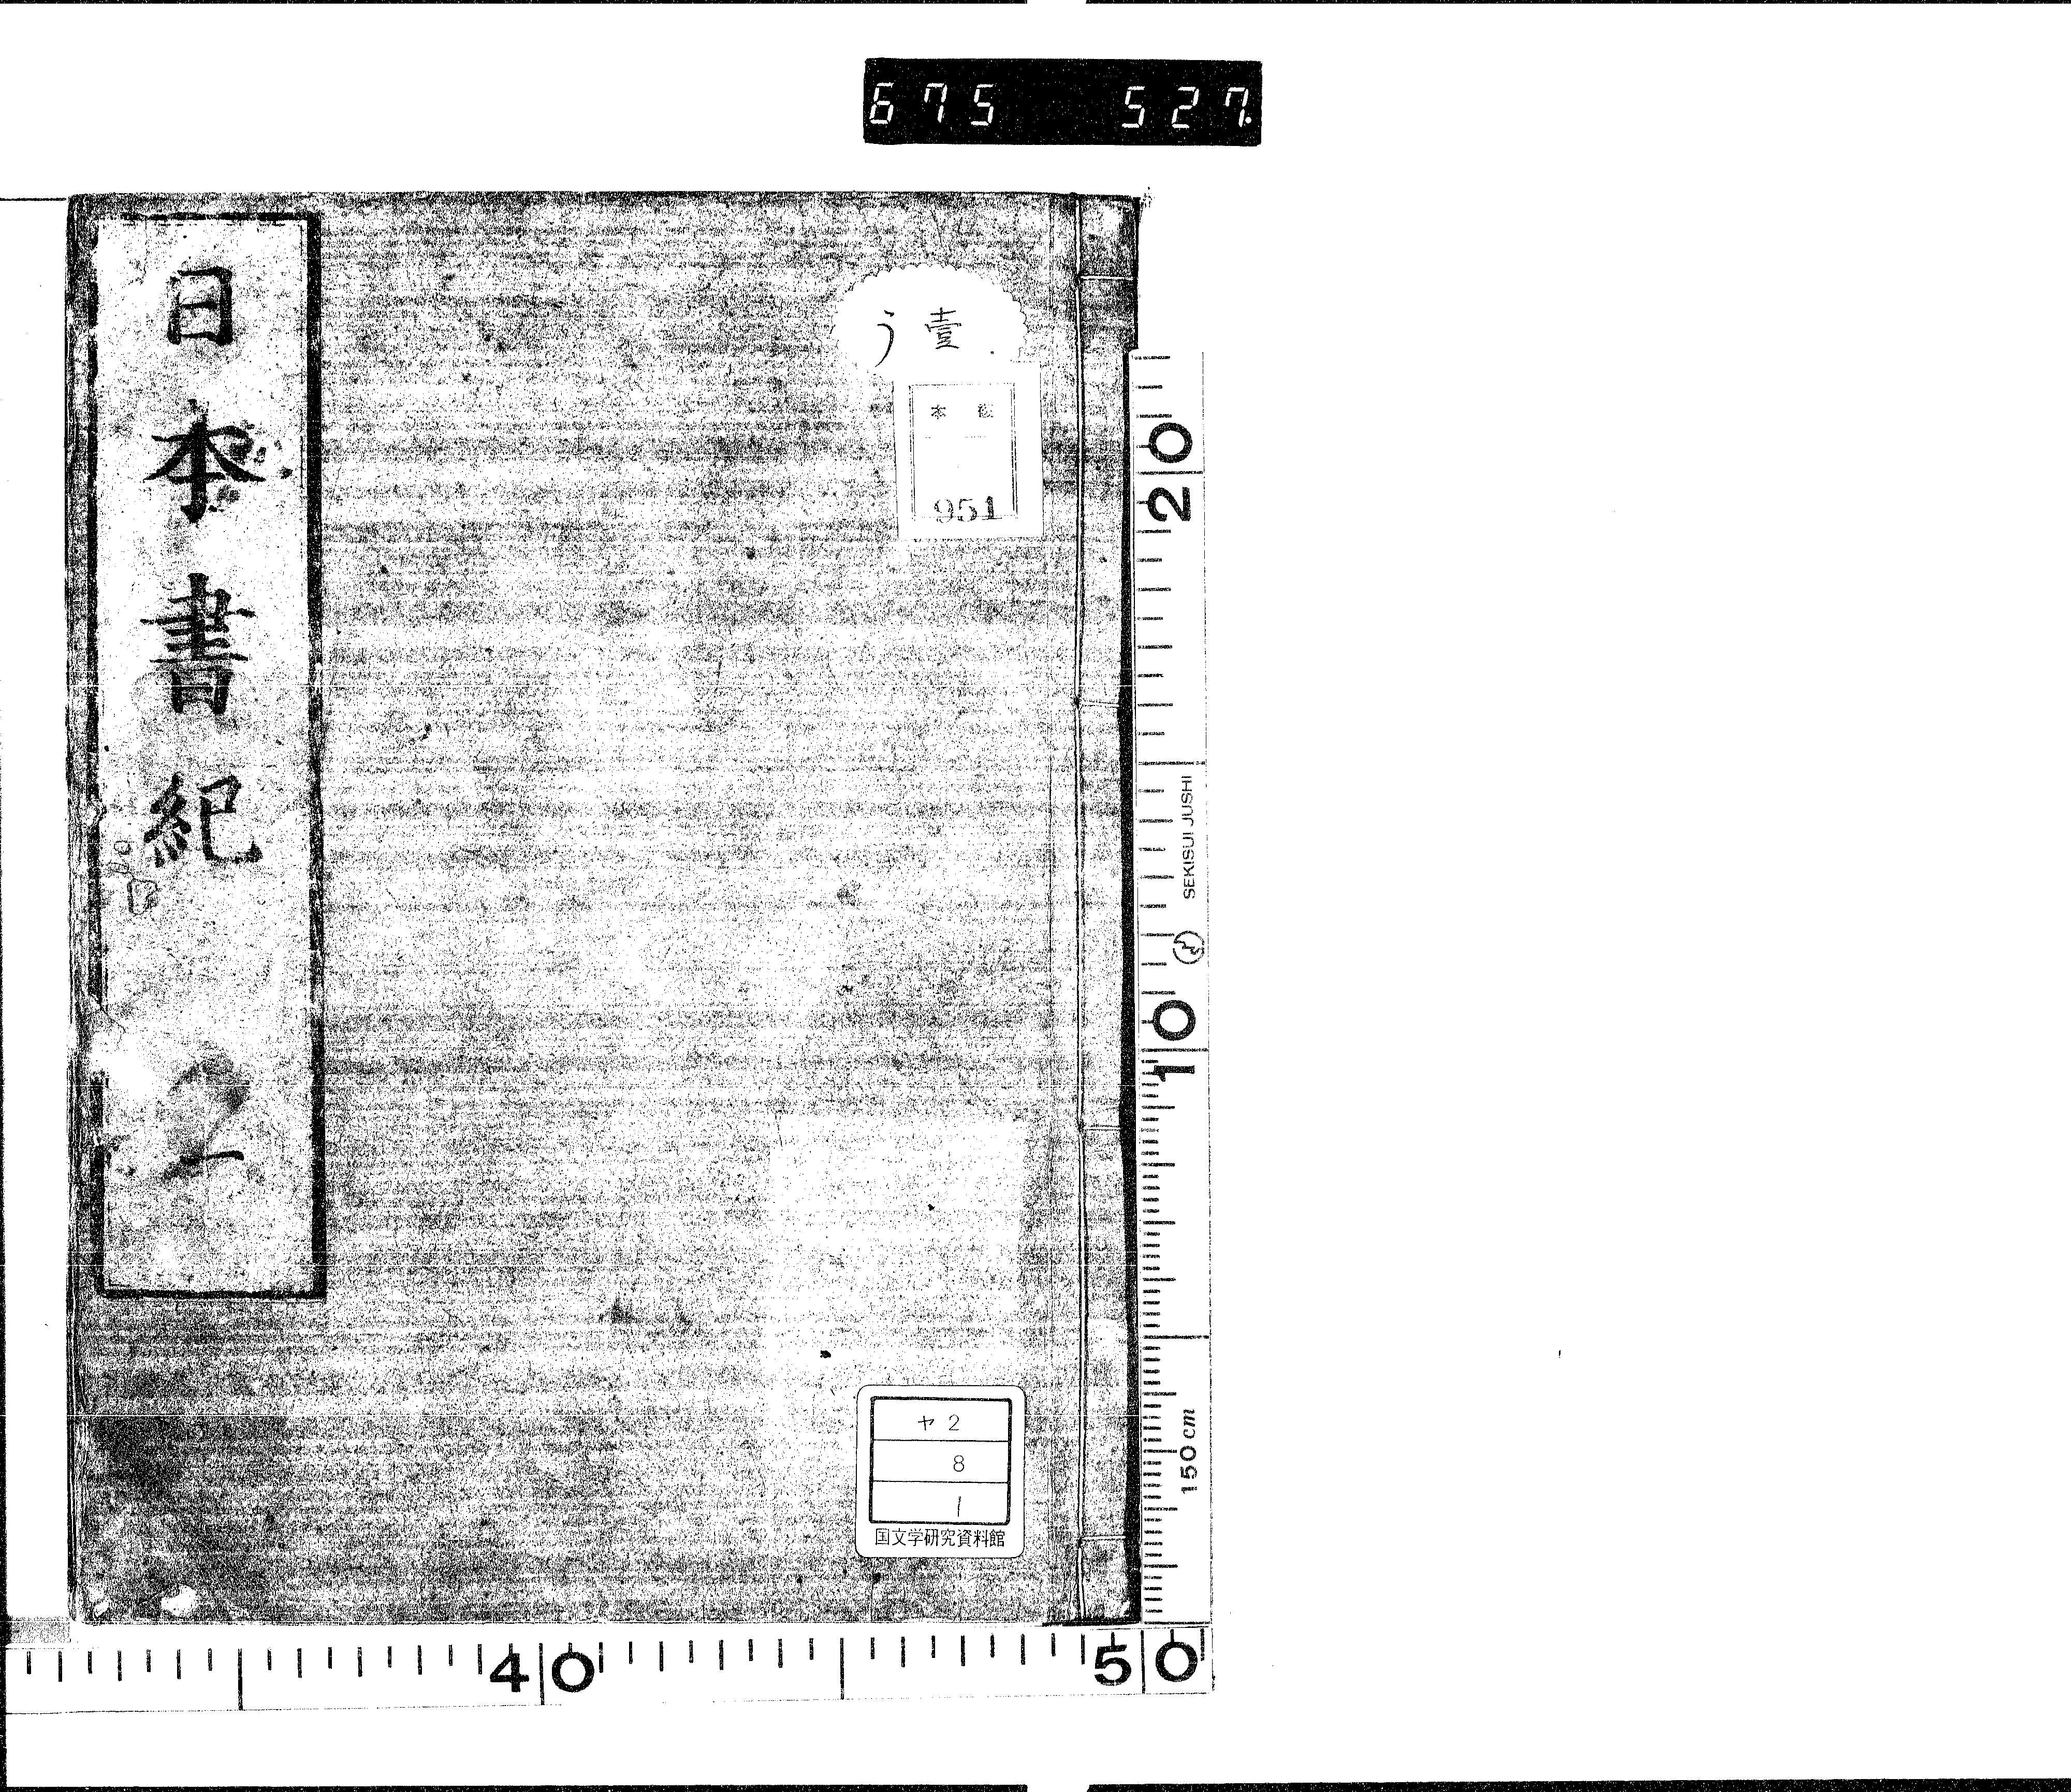 675 527.
日本書紀 一
う 壹
951
ヤ 2
8
1
国文学研究資料館
20
SEKISUJI JUSHI
10
150 cm
40
50